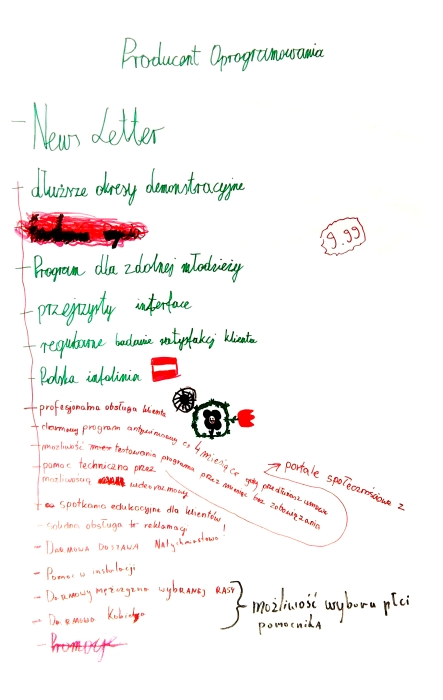 Producent Oprogramowania
News Letter
dłuższe okresy demonstracyjne
9.99
Program dla zdolnej młodzieży
przejrzysty interface
regularne badanie satysfakcji klienta
Polska infolinia
profesjonalna obsługa klienta
darmowy program antywirusowy co 4 miesiące gdy przedłużasz umowę
możliwość testowania programu przez miesiąc bez zobowiązania
portale społecznościowe z
pomoc techniczna przez
możliwością wideorozmowy
spotkania edukacyjne dla klientów
solidna obsługa reklamacji!
Darmowa dostawa Natychmiastowa!
Pomoc w instalacji
Darmowy mężczyzna wybranej rasy
Darmowa Kobieta
możliwość wyboru płci
pomocnika
Promocje